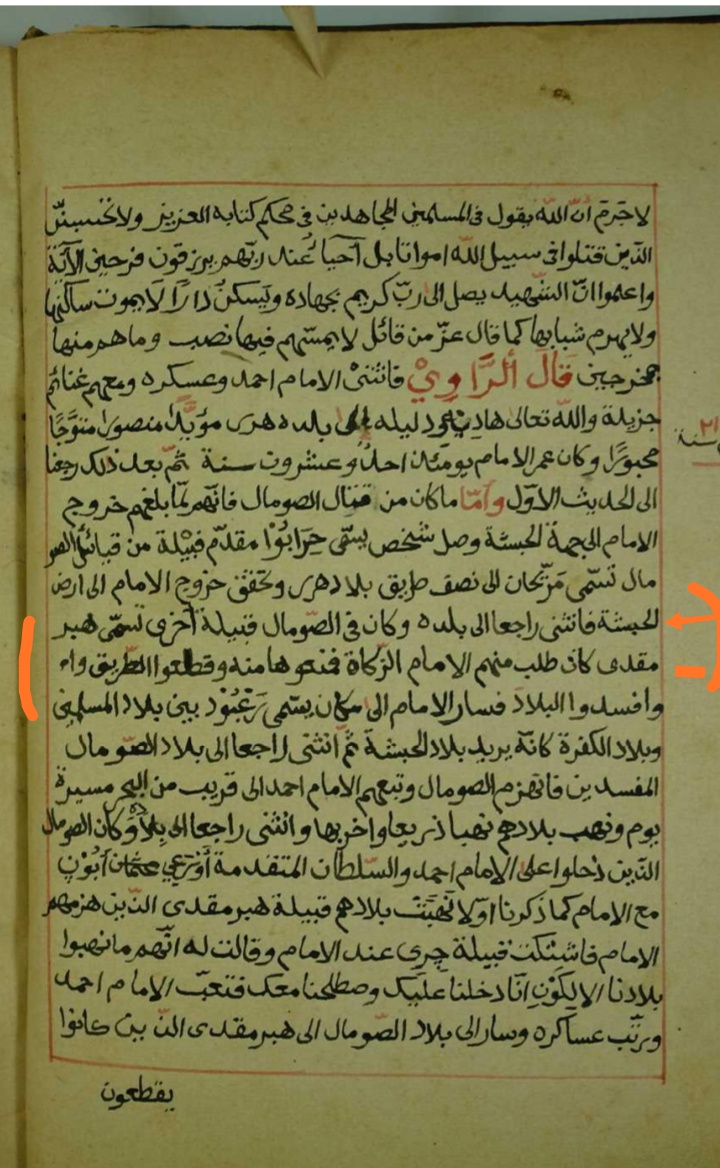 لاجرم انّ الله يقول فى المسلمين المجاهدين فى محكم كتابه العزيز ولا تحسبنّ
الذين قتلوا فى سبيل الله امواتا بل أحياءُ عند ربّهم يرزقون فرحين الآية
واعلموا انّ الشهيد يصل الى ربّ كريم بجهاده ويسكن دارًا لايموت ساكنها
ولا يهرم شبابها كما قال عزّ من قائل لا يمسّهم فيها نصب وما هم منها
بمخرجين قال الرّاوي فانثنى الامام احمد وعسكره ومعهم غنائم
جزيلة والله تعالى هاديه ودليله الى بلده هرى مؤيّدًا منصورا متوّجًا
محبورًا وكان عمر الامام يومئذ احد وعشرون سنة ثمّ بعد ذلك رجعنا
٢١
سنة
الى الحديث الاوّل وأمّا ماكان من قتال الصومال فانّهم لمّا بلغهم خروج
الامام الى جهة الحبشة وصل شخص يسمّى حرابُوْا مقدّم قبيلة من قبائل الصو
مال تسمّى مَرّيحان الى نصف طريق بلاد هرى وتحقق خروج الامام الى ارض
الحبشة فانثنى راجعا الى بلده وكان فى الصّومال قبيلة أخرى تسمّى هبر
مقدى كان طلب منهم الامام الزّكاة فمنعوها منه وقطعوا الطّريق واء
وأفسدوا البلاد فسار الامام الى مكان يسمى زَعْبُوْد بين بلاد المسلمين
وبلاد الكفرة كانّه يريد بلاد الحبشة ثمّ انثنى راجعا الى بلاد الصّومال
المفسدين فانهزم الصومال وتبعهم الامام احمد الى قريب من البحر مسيرة
يوم ونهب بلادهم نهبا ذريعا واخربها وانثنى راجعا الى بلاده وكان الصومال
الذّين دخلوا على الامام احمد والسّلطان المتقدمة
مع الامام كما ذكرنا اوّلا نُهبَتْ بلادهم قبيلة هبر مقدى الذّين هزمهم
الامام فاشتكت قبيلة جرى عند الامام وقالت له انّهم مانهبوا
بلادنا الا لكَوْنِ انّا دخلنا عليك وصطلحنا معك فتعب الامام احمد
ورتّب عساكره وسار الى بلاد الصّومال الى هبر مقدى الذّين كانوا
يقطعون